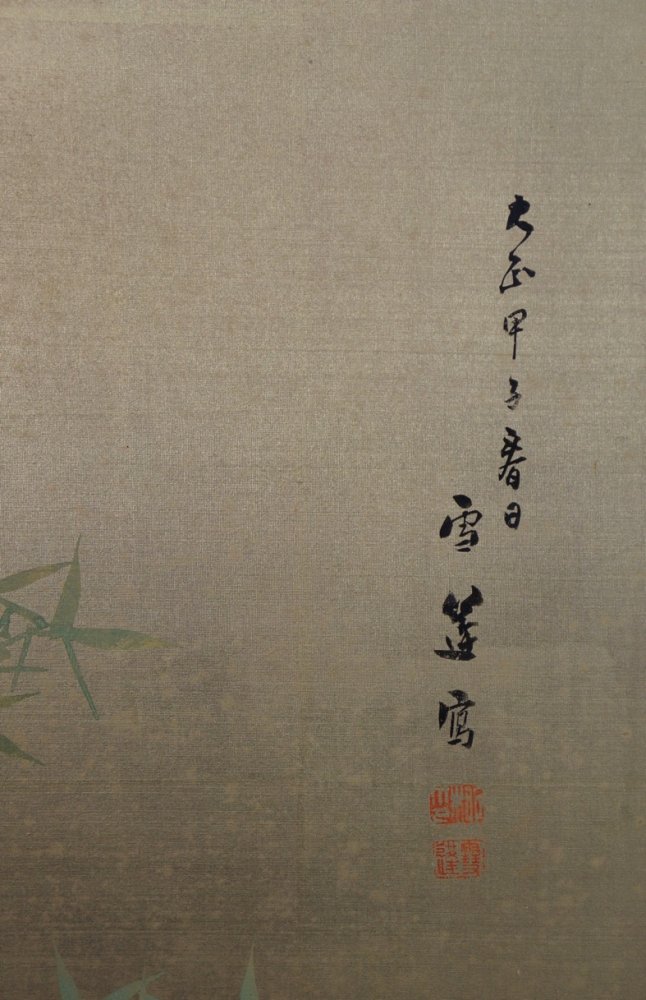 大正甲子春日
雪蓬寫